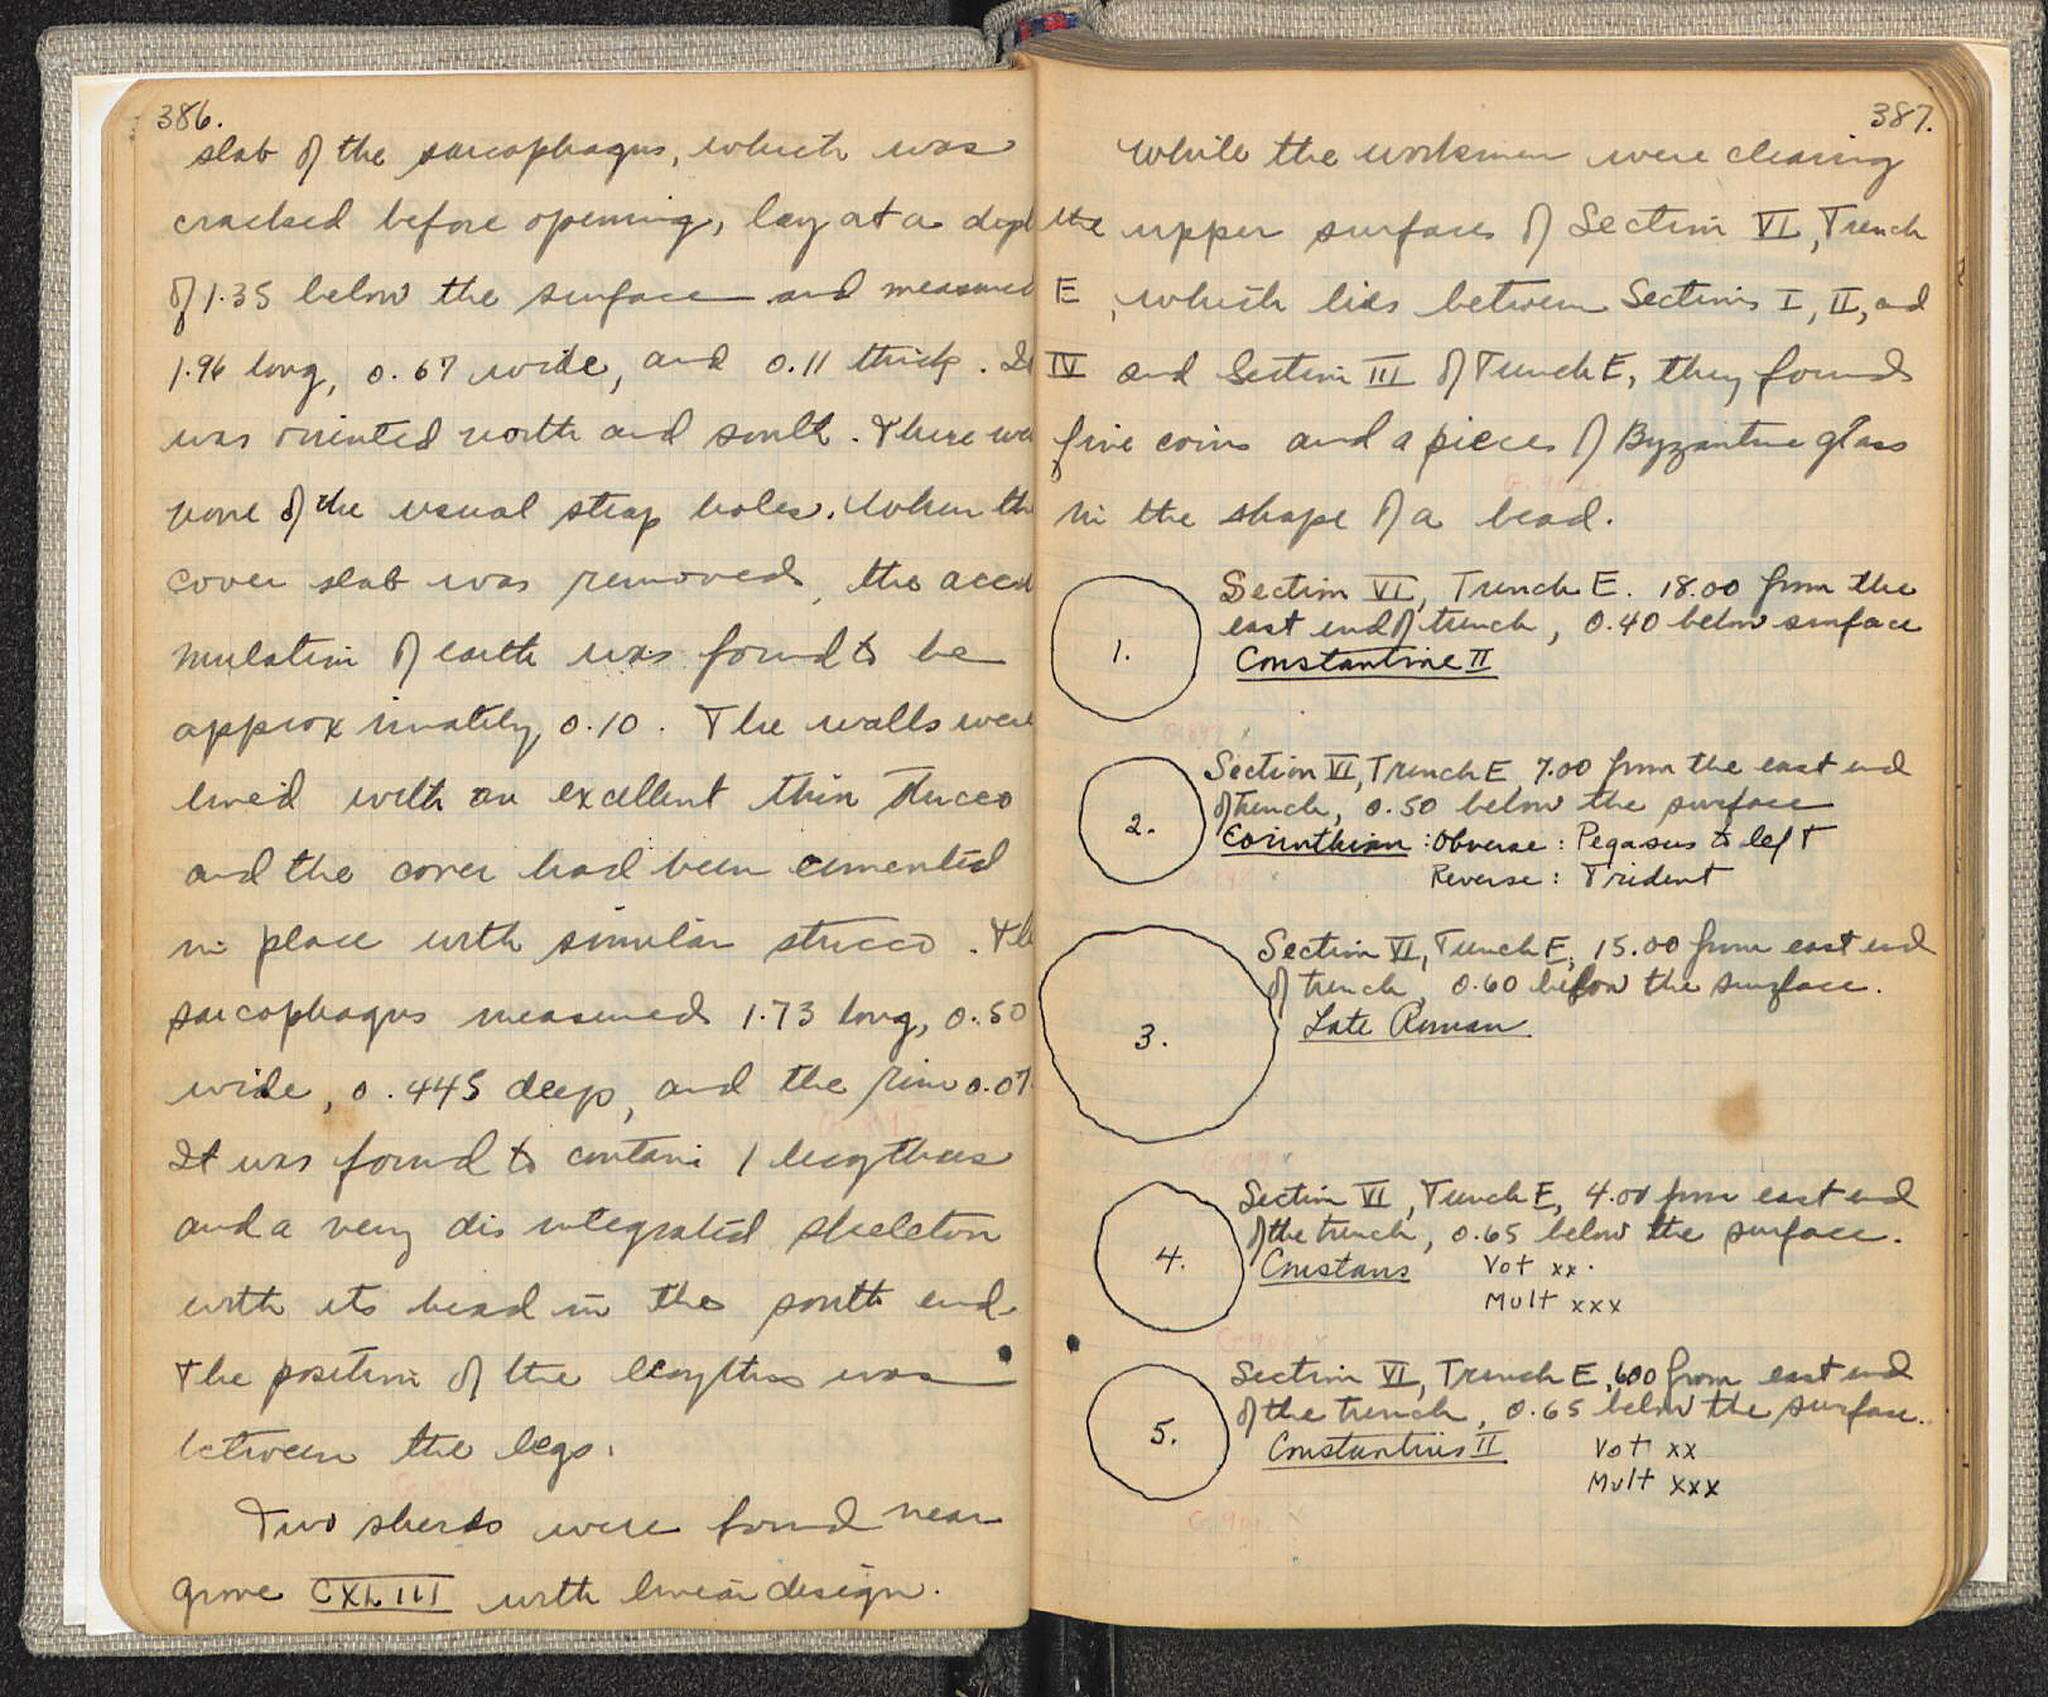 386.
slab of the sarcophagus, which was
cracked before opening, lay at a dept
of 1.35 below the surface and measured
1.96 long, 0.67 wide, and 0.11 thick. It
was oriented north and south. There we
none of the usual strap holes. When th
cover slab was removed, the accu
mulation of earth was found to be
approximately 0.10. The walls were
lined with an excellent thin stucco
and the cover had been cemented
in place with similar stucco. The
sarcophagus measured 1.73 long, 0.50
wide, 0.445 deep, and the rim 0.07
It was found to contain 1 lecythus
and a very disintegrated skeleton
with its head in the south end.
The position of the lecythus was
between the legs.
Two sherds were found near
grave CXLIII with linear design.
387.
While the workmen were clearing
the upper surface of Section VI, Trench
E, which lies between Sections I, II, and
IV and Section III of Trench E, they found
five coins and a piece of Byzantine glass
in the shape of a bead.
1.
Section VI, Trench E. 18.00 from the
east end of trench, 0.40 below surface
Constantine II
2.
Section VI, Trench E 7.00 from the east end
of trench, 0.50 below the surface
Corinthian : Obverse : Pegasus to left
Reverse : Trident
3.
Section VI, Trench E, 15.00 from east end
of trench, 0.60 below the surface.
Late Roman
4.
Section VI, Trench E, 4.00 from east end
of the trench, 0.65 below the surface.
Constans Vot xx.
Mult xxx
5.
Section VI, Trench E, 600 from east end
of the trench, 0.65 below the surface.
Constantius II Vot xx
Mult xxx